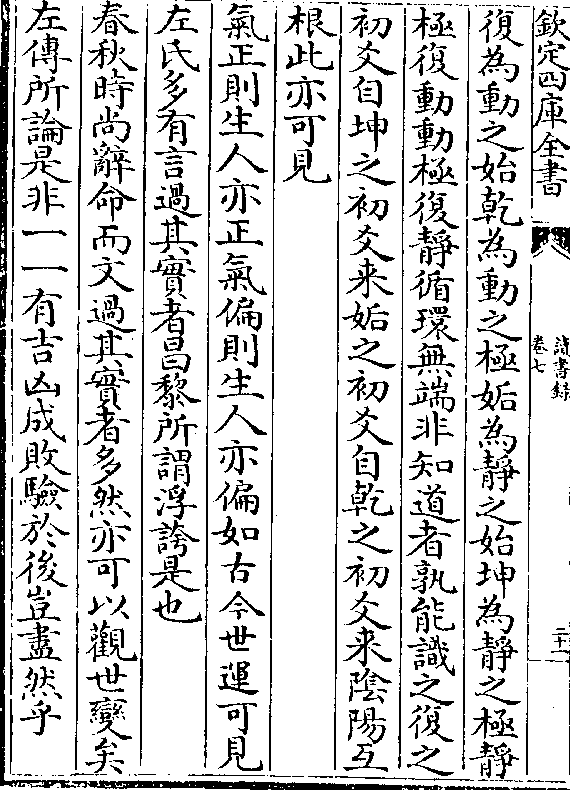 欽定四庫全書
讀書錄
卷七
復為動之始乾為動之極姤為靜之始坤為靜之極靜
極復動動極復靜循環無端非知道者孰能識之復之
初爻自坤之初爻来姤之初爻自乾之初爻来陰陽互
根此亦可見
氣正則生人亦正氣偏則生人亦偏如古今世運可見
左氏多有言過其實者昌黎所謂浮誇是也
春秋時尚辭命而文過其實者多然亦可以觀世變矣
左傳所論是非一一有吉凶成敗驗於後豈盡然乎